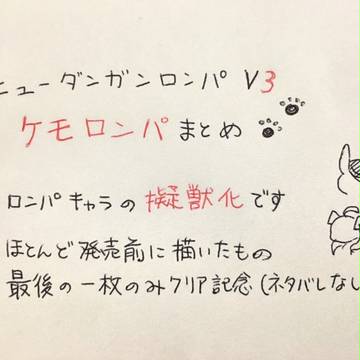 ニューダンガンロンパ V3
ケモロンパまとめ
ロンパキャラの擬獣化です
ほとんど発売前に描いたもの
最後の一枚のみクリア記念(ネタバレなし